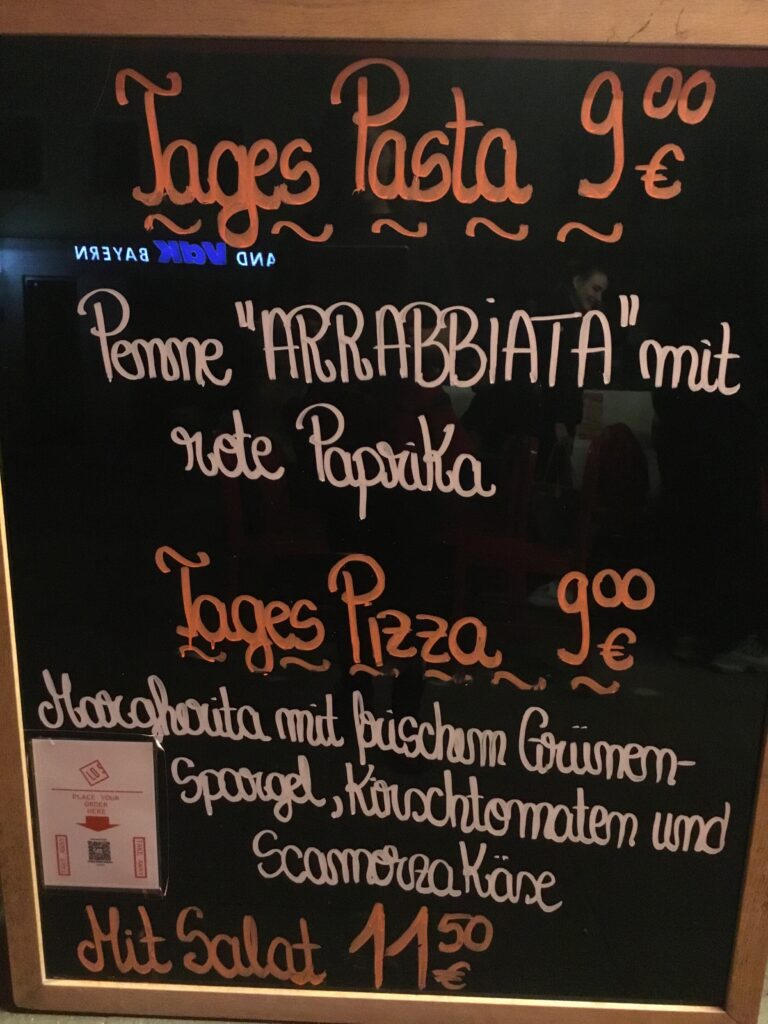 Tages Pasta 9.00 €
AND VdK BAYERN
Penne "ARRABBIATA" mit
rote Paprika
Tages Pizza 9.00 €
Margherita mit frischem Grünen-
Spargel, Kirschtomaten und
Scamorza Käse
PLACE YOUR
ORDER
HERE
Mit Salat 11.50 €